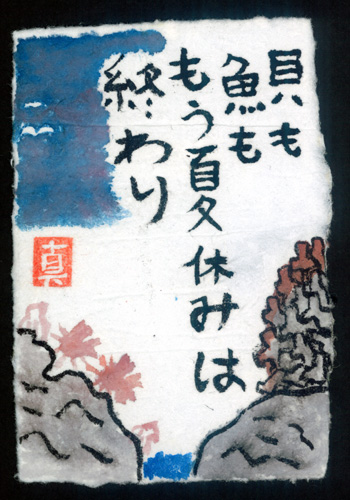 貝も
魚も
もう夏休みは
終わり
真